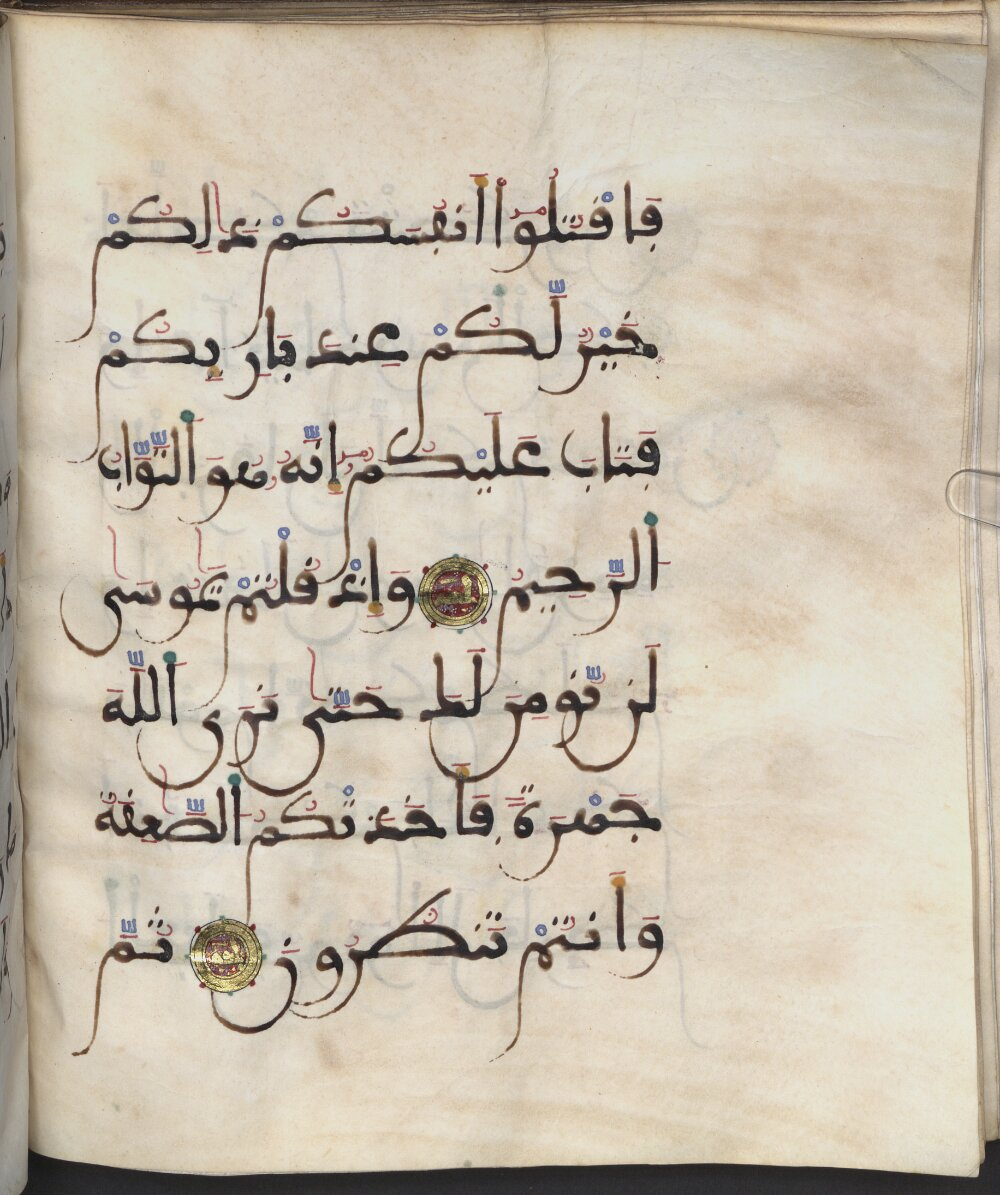 فَاقْتُلُوٓاْ أَنفُسَكُمْ ذَٰلِكُمْ
خَيْرٌ لَّكُمْ عِندَ بَارِئِكُمْ
فَتَابَ عَلَيْكُمُۥٓ إِنَّهُۥ هُوَ اَلتَّوَّابُ
اَلرَّحِيمُ وَإِذْ قُلْتُمْ يَٰمُوسَىٰ
لَن نُّومِنَ لَكَ حَتَّىٰ نَرَى اَللَّهَ
جَهْرَةً فَأَخَذَتْكُمُ اَلصَّٰعِقَةُ
وَأَنتُمْ تَنظُرُونَ ثُمَّ